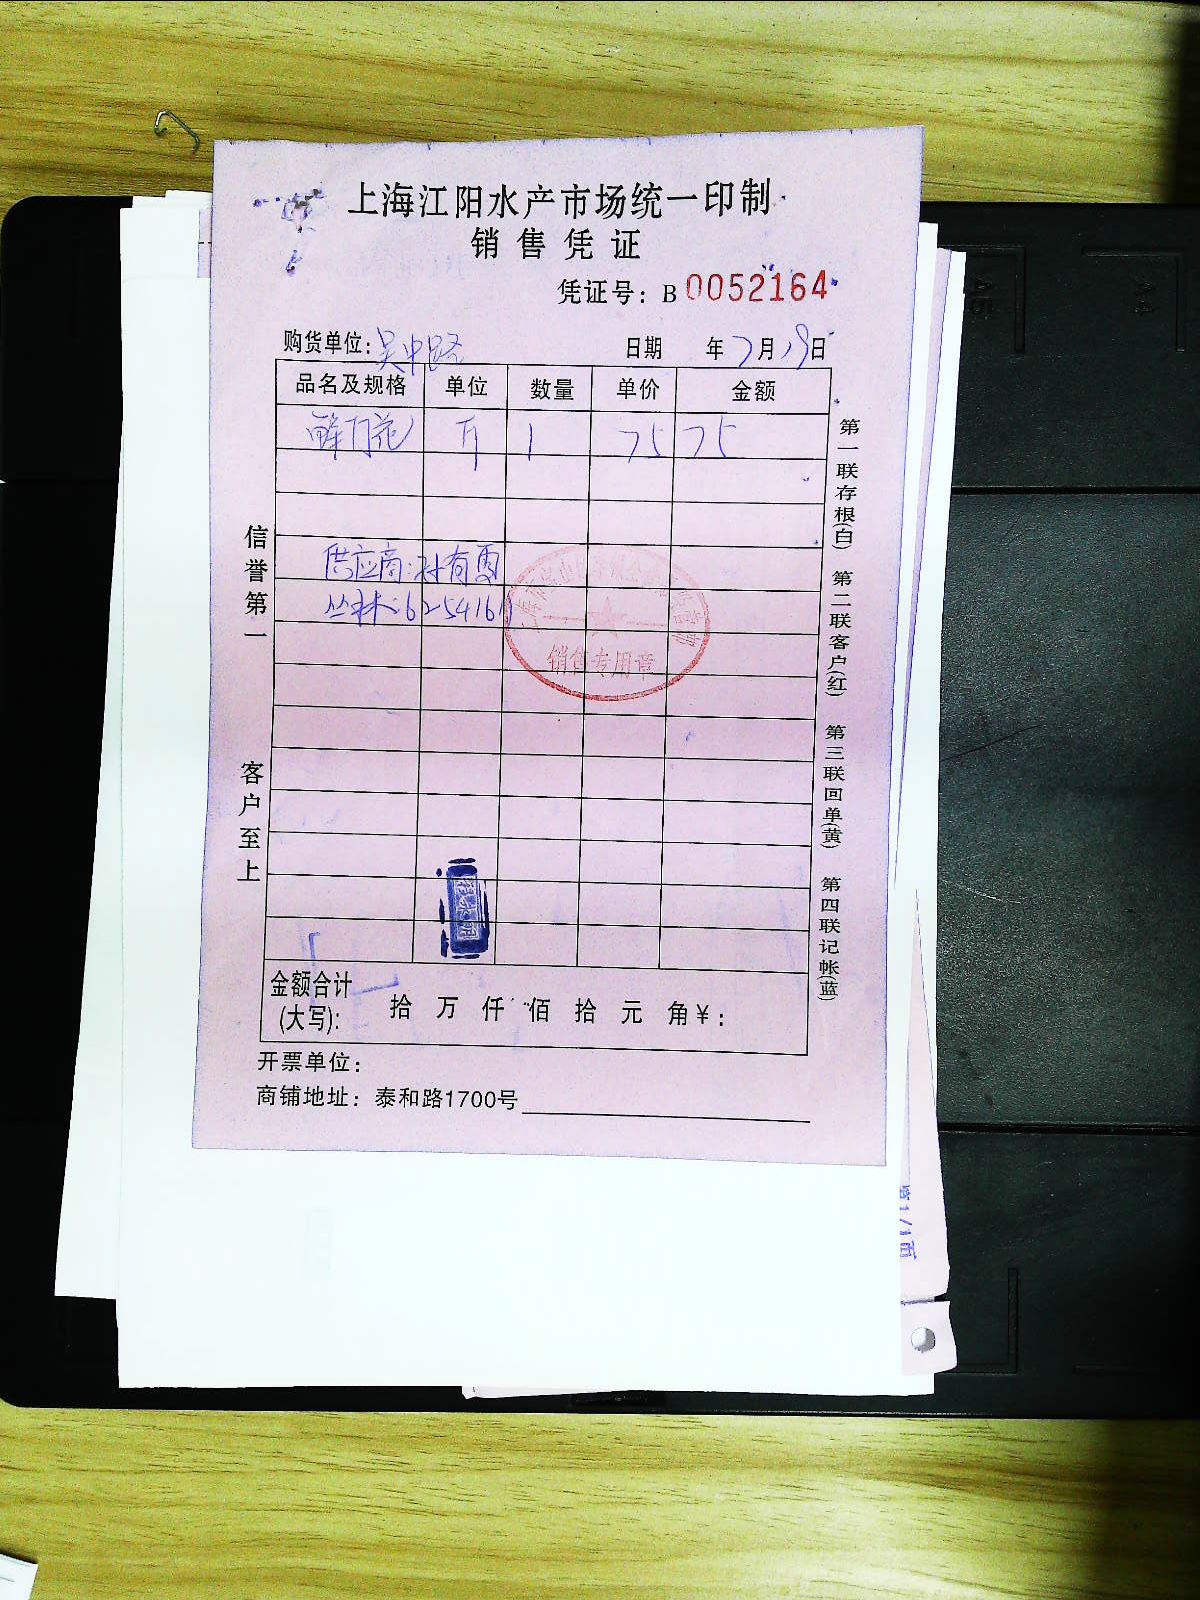 上海江阳水产市场统一印制
销售凭证
凭证号：B 0052164
购货单位：吴中路 日期 年 7月19日
品名及规格 单位 数量 单价 金额
斤 1 75 75
供应商：孙有
丛林：6254161
销售专用章
信誉第一 客户至上
第一联存根(白) 第二联客户(红) 第三联回单(黄) 第四联记帐(蓝)
金额合计
(大写)： 拾 万 仟 佰 拾 元 角 ¥：
开票单位：
商铺地址：泰和路1700号
第1/1面
A5
A4